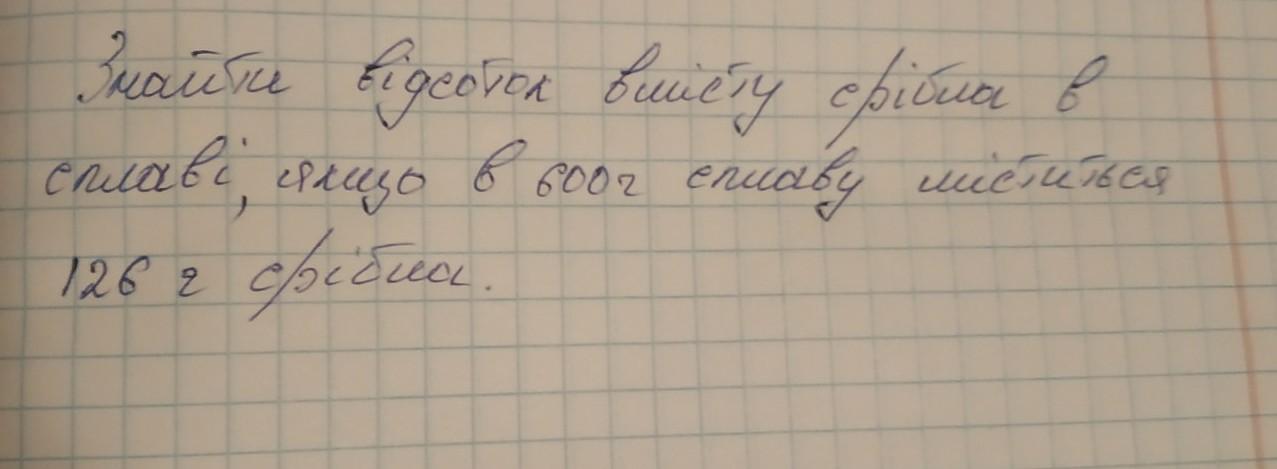 Знайти відсоток вмісту срібла в
сплаві, якщо в 600г сплаву міститься
126 г срібла.